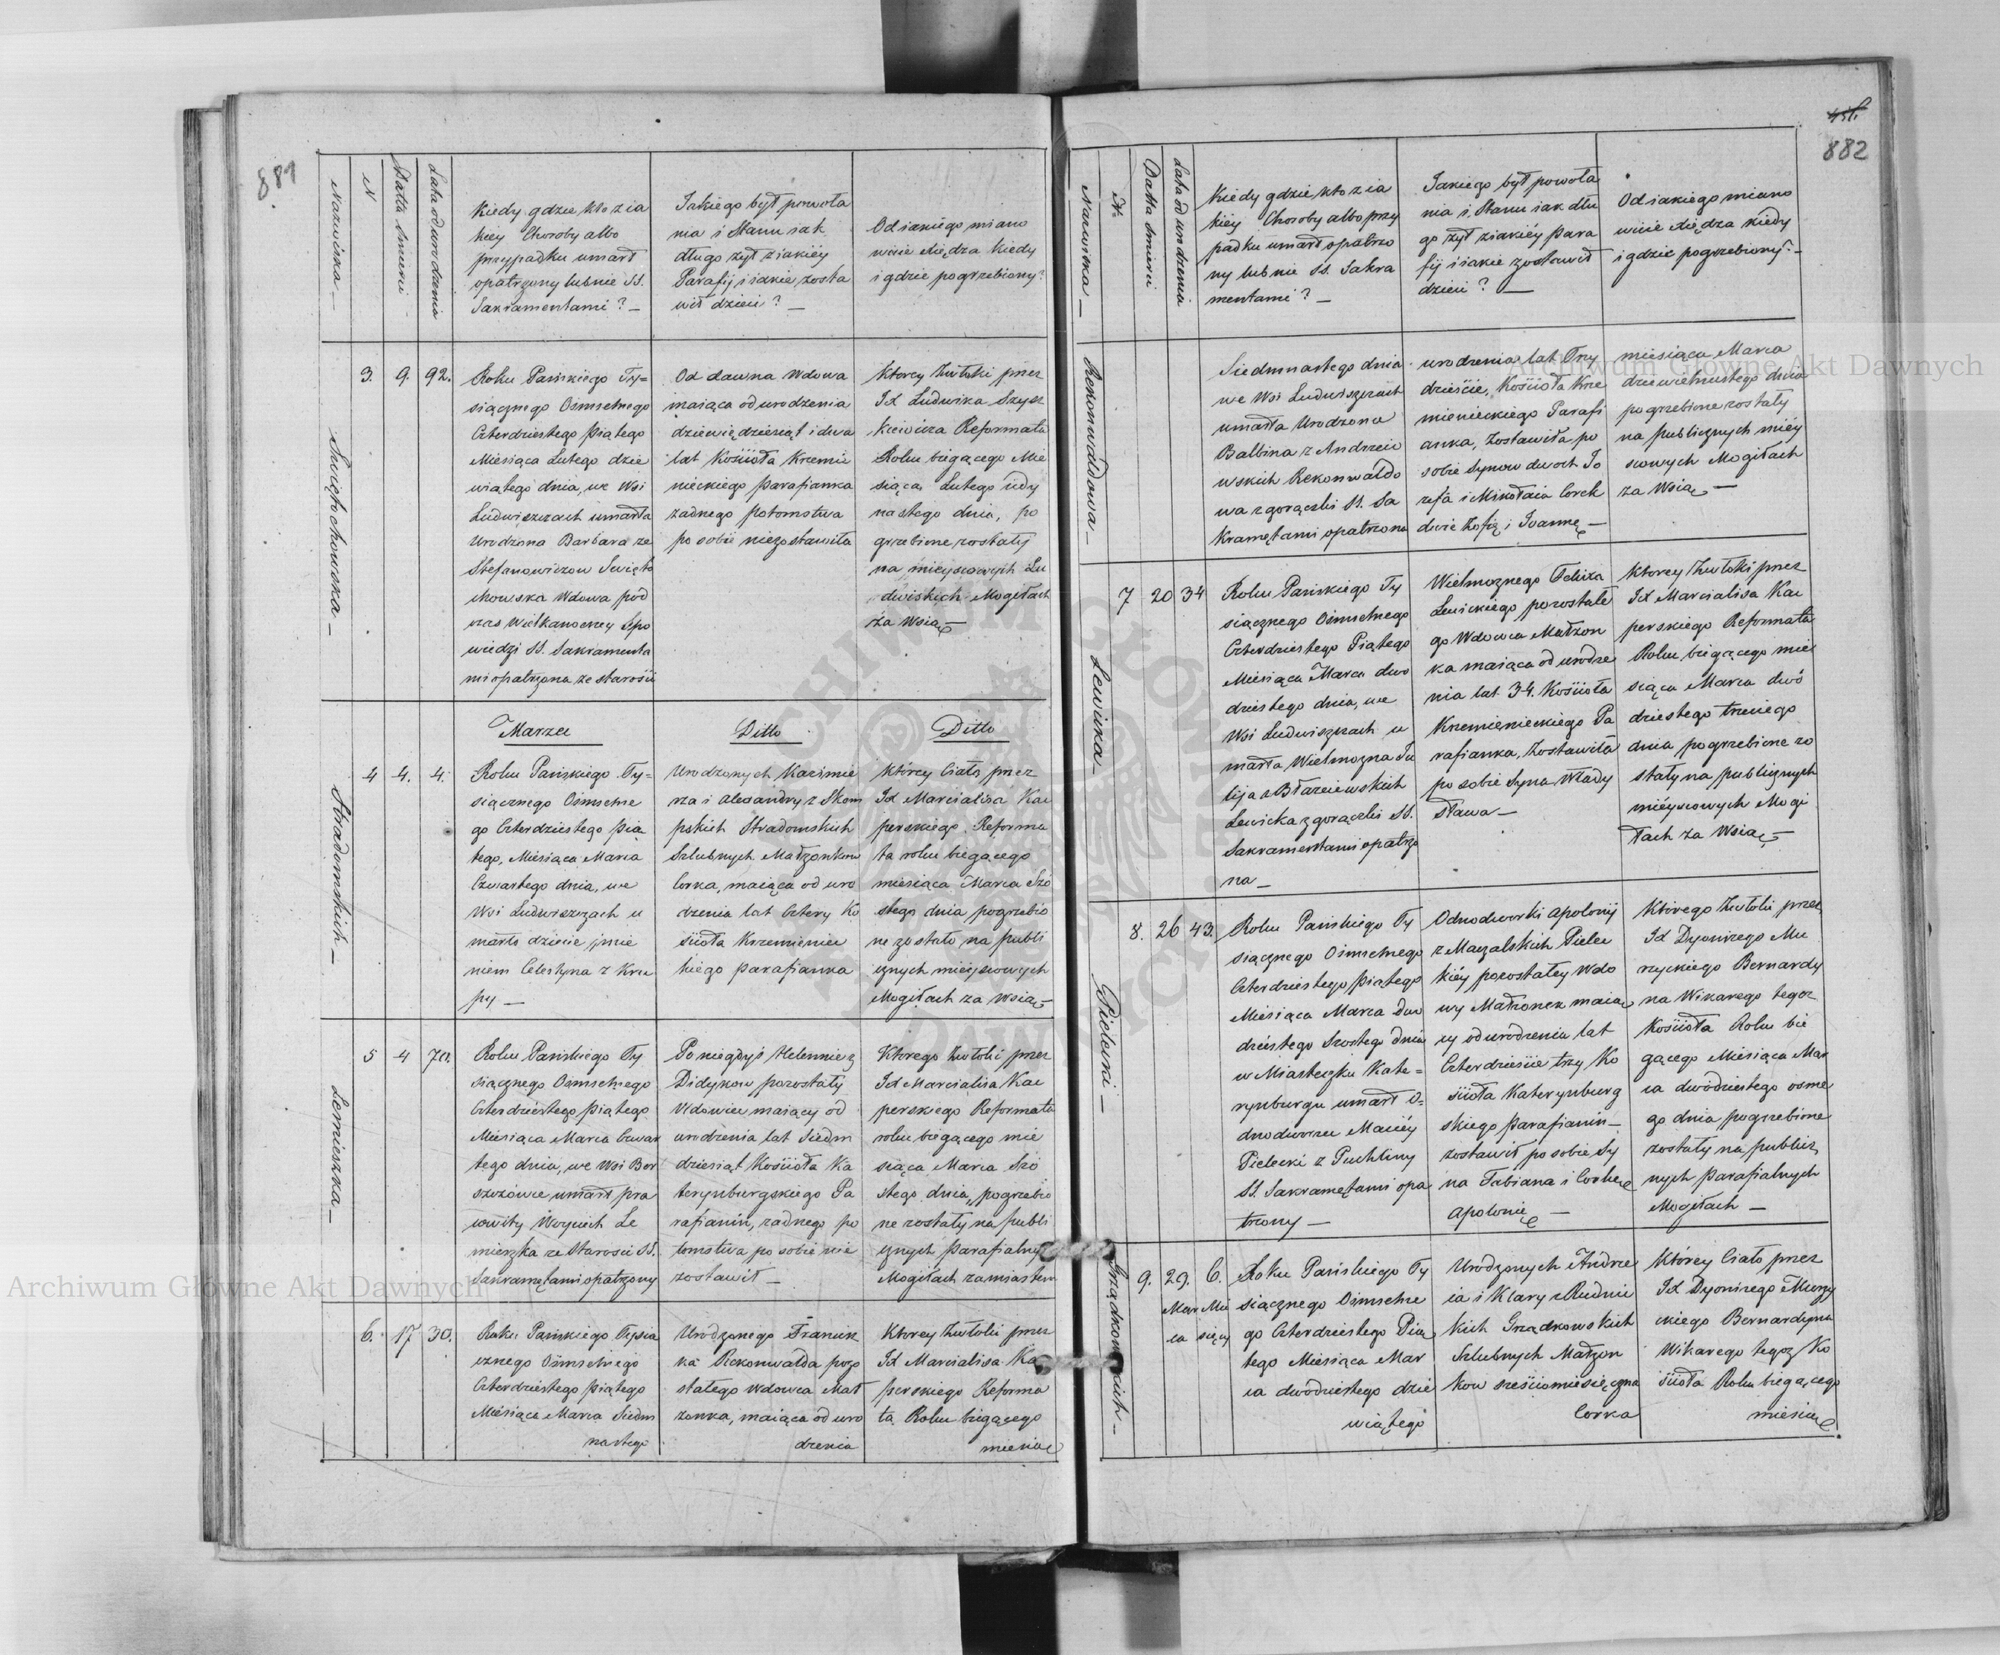 881
Nazwiska —
N
Datta Smierci
Lata od urodzenia
Kiedy gdzie kto z ia
kiey Choroby albo
przypadku umarł
opatrzony lub nie SS.
Sakramentami ? —
Jakiego był powoła
nia i Stanu iak
długo żył z iakiéy
Parafij i iakie zosta
wił dzieci ? —
Od iakiego miano
wicie Xiędza kiedy
i gdzie pogrzebiony ?
Swiętochowska —
3. 9. 92.
Roku Pańskiego Ty=
siącznego Ośmsetnego
Czterdziestego Piątego
Miesiąca Lutego dzie
wiątego dnia, we Wsi
Ludwiszczach umarła
Urodzona Barbara ze
Stefanowiczow Swięto
chowska Wdowa pod
czas Wielkanocney Spo
wiedzi SS. Sakramenta
mi opatrzona ze starości
Od dawna Wdowa
maiąca od urodzenia
dziewięćdziesiąt i dwa
lat Kościoła Krzemie
nieckiego Parafianka
żadnego potomstwa
po sobie niezostawiła
Ktorey Zwłoki przez
Jx Ludwika Szysz
kiewicza Reformata
Roku biegącego Mie
siąca Lutego iedy
nastego dnia, po
grzebione zostały
na mieyscowych Lu
dwiskich Mogiłach
za Wsią —
Marzec
Ditto
Ditto
Stradomskich —
4 4. 4.
Roku Pańskiego Ty=
siącznego Ośmsetne
go Czterdziestego Pią
tego, Miesiąca Marca
Czwartego dnia, we
Wsi Ludwiszczach u
marło dziecie imie
niem Celestyna z Kru
py —
Urodzonych Kazimie
rza i Alexandry z Skom
pskich Stradomskich
Szlubnych Małżonkow
Corka, maiąca od uro
dzenia lat Cztery Ko
ścioła Krzemieniec
kiego Parafianka
Którey Ciało przez
Jx Marcialisa Kac
perskiego Reforma
ta roku biegącego
miesiąca Marca Szó
stego dnia pogrzebio
ne zostało na publi
cznych mieyscowych
Mogiłach za Wsią —
Lemieszka —
5 4 70.
Roku Pańskiego Ty
siącznego Ośmsetnego
Czterdziestego Piątego
Miesiąca Marca Czwar
tego dnia, we Wsi Bor
szczówce umarł pra
cowity Woyciech Le
mieszka ze Starosci SS.
Sakramętami opatrzony
Po niegdyś Helennie z
Didykow pozostały
Wdowiec maiący od
urodzenia lat Siedm
dziesiąt Kościoła Ka
terynburgskiego Pa
rafianin, żadnego po
tomstwa po sobie nie
zostawił —
Ktorego Zwłoki przez
Jx Marcialisa Kac
perskiego Reformata
roku biegącego mie
siąca Marca Szó
stego dnia, pogrzebio
ne zostały na publi
cznych Parafialnych
Mogiłach za miastem
6. 17 30.
Roku Pańskiego Tysią
cznego Ośmsetnego
Czterdziestego Piątego
Miesiąca Marca Siedm
nastego
Urodzonego Francisz
ka Rekonwalda pozo
stałego Wdowca Mał
żonka, maiąca od uro
dzenia
Ktorey Zwłoki przez
Jx Marcialisa Ka
perskiego Reforma
ta Roku biegącego
miesiąca
882
Nazwiska —
N.
Datta Smierci
Lata od urodzenia
Kiedy gdzie kto z ia
kiéy Choroby albo przy
padku umarł opatrzo
ny lub nie SS. Sakra
mentami ? —
Jakiego był powoła
nia i Stanu iak dłu
go żył z iakiéy Para
fij i iakie zostawił
dzieci ? —
Od iakiego miano
wicie Xiędza kiedy
i gdzie pogrzebiony ? —
Rekonwaldowa —
Siedmnastego dnia
we Wsi Ludwiszczach
umarła Urodzona
Balbina z Andrzeio
wskich Rekonwaldo
wa z gorączki SS. Sa
kramętami opatrzona
urodzenia lat Trzy
dzieście, Kościoła Krze
mienieckiego Parafi
anka, Zostawiła po
sobie Synow dwoch Jo
zefa i Mikołaia Corek
dwie Zofią i Joannę —
miesiąca Marca
dziewietnastego dnia
pogrzebione zostały
na publicznych miey
scowych Mogiłach
za Wsią —
Lewicka —
7 20 34
Roku Pańskiego Ty
siącznego Ośmsetnego
Czterdziestego Piątego
Miesiąca Marca dwo
dziestego dnia, we
Wsi Ludwiszczach u
marła Wielmożna Ju
lija z Błażeiewskich
Lewicka z gorączki SS.
Sakramentami opatrzo
na —
Wielmożnego Felixa
Lewickiego pozostałe
go Wdowca Małżon
ka maiąca od urodze
nia lat 34. Kościoła
Krzemienieckiego Pa
rafianka, Zostawiła
po sobie Syna Włady
sława —
Ktorey Zwłoki przez
Jx Marcialisa Kac
perskiego Reformata
Roku biegącego mie
siąca Marca dwó
dziestego trzeciego
dnia pogrzebione zo
stały na publicznych
mieyscowych Mogi
łach za Wsią —
Pielecki —
8. 26 43.
Roku Pańskiego Ty
siącznego Ośmsetnego
Czterdziestego Piątego
Miesiąca Marca Dwu
dziestego Szostego dnia
w Miasteczku Kate=
rynburgu umarł O=
dnodworzec Maciéy
Pielecki z Puchliny
SS. Sakramętami opa
trzony —
Odnodworki Apolonij
z Maczalskich Pielec
kiéy pozostałey Wdo
wy Małżonek maiąc
cy od urodzenia lat
Czterdzieście trzy Ko
ścioła Katerynburg
skiego Parafianin —
zostawił po sobie Sy
na Fabiana i Corkę
Apolonię —
Którego Zwłoki przez
Jx Dyonizego Mu
rzyckiego Bernardy
na Wikarego tegoż
Kościoła Roku bie
gącego Miesiąca Mar
ca dwódziestego osme
go dnia pogrzebione
zostały na publicz
nych Parafialnych
Mogiłach —
Grządkowskich —
9. 29. 6.
Mar Mie
ca sięcy
Roku Pańskiego Ty
siącznego Ośmsetne
go Czterdziestego Pią
tego Miesiąca Mar
ca dwodziestego dzie
wiątego
Urodzonych Andrze
ia i Klary z Rudnic
kich Grządkowskich
Szlubnych Małżon
kow sześciomiesięczna
Corka
Którey Ciało przez
Jx Dyonizego Murzy
ckiego Bernardyna
Wikarego tegoż Ko
ścioła Roku biegącego
miesiąca
Archiwum Główne Akt Dawnych
Archiwum Główne Akt Dawnych